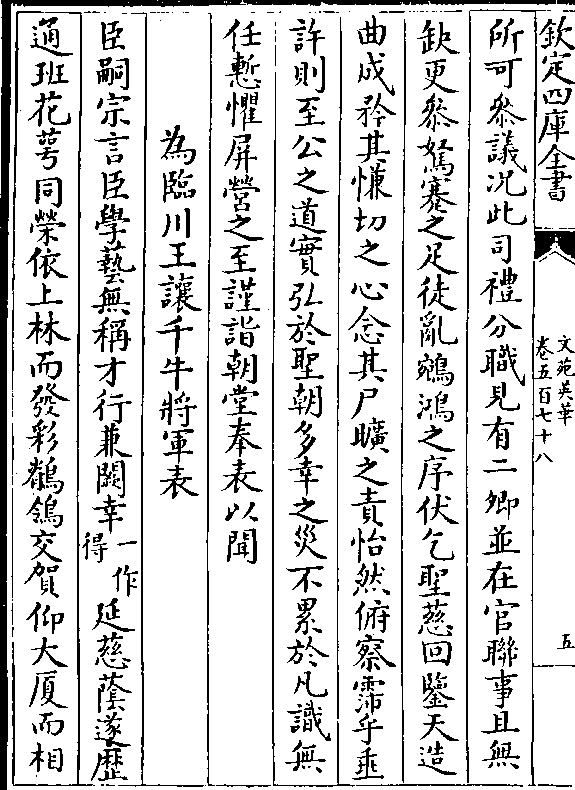 欽定四庫全書
文苑英華
卷五百七十八
五
所可參議况此司禮分職見有二卿並在官聯事且無
缺更參駑蹇之足徒亂鵷鴻之序伏乞聖慈回鑒天造
曲成矜其慊切之心念其尸曠之責怡然俯察霈乎垂
許則至公之道實弘於聖朝多幸之災不累於凡識無
任慙懼屏營之至謹詣朝堂奉表以聞
為臨川王讓千牛將軍表
臣嗣宗言臣學藝無稱才行兼闕幸一作得延慈蔭遂歷
通班花萼同榮依上林而發彩鶺鴒交賀仰大厦而相